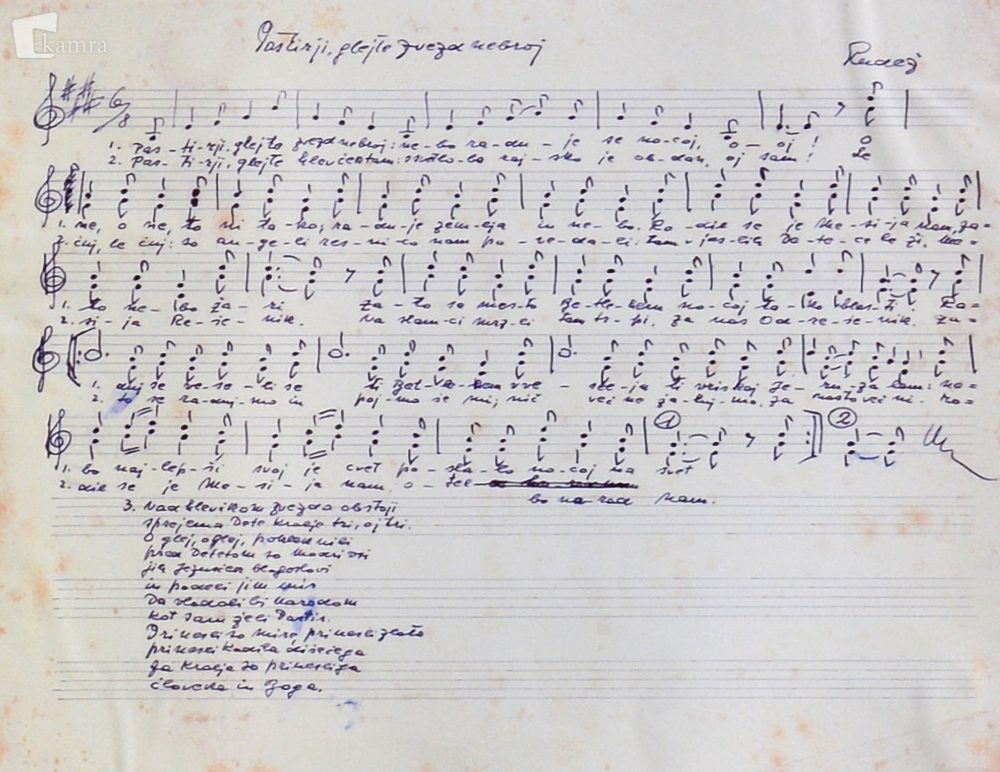 kamra
Pastirji, glejte zvezd nebroj
Rudež
6/8
1. Pas-ti-rji, glejte zvezd nebroj: ne-bo ra-du-je se no-coj, o-oj! O
2. Pas-ti-rji, glejte hlevčeatam: svetlo-bo raj-sko je ob-dan, oj sam! Le
1. ne, o ne, to ni ta-ko, ra-du-je zem-lja in ne-bo. Ro-dil se je Me-si-ja nam, za-
2. čuj, le čuj: so an-ge-li res-ni-co nam po-ve-da-li: tam v jas-lih De-te-ce le-ži, Me-
1. to ne-bo ža-ri Za-to so mes-to Be-tle-hem no-coj ta-ko blešči. Ra-
2. si-ja Re-še-nik. Na slam-ci mrz-li tam tr-pi, za nas Od-re-še-nik. Za-
1. duj se ve-se-li se ti Bet-le-hem vse-sle-ja ti vriskaj Je-ru-za-lem: ne-
2. to se ra-duj-mo in poj-mo se mi, nič več ne ža-luj-mo, za nas to več ni. Ro-
① ②
1. bo naj-lep-ši svoj je cvet po-sla-lo no-coj na svet
2. dil se je Me-si-ja nam, o-tel
bo na-rod nam.
3. Nad hlevčkom zvezda obstoji
sprejema Dete kralje tri, oj tri.
O glej, o glej, pokleknili
pred Detetom so modri vsi
jih Jezušček blagoslovi
in podeli jim mir
Da vladali bi narodom
kot sam želi Pastir.
Prinesli so miro, prinesli zlato
prinesli kadila dišečega
Za kralja so prinesli ga
človeka in Boga.